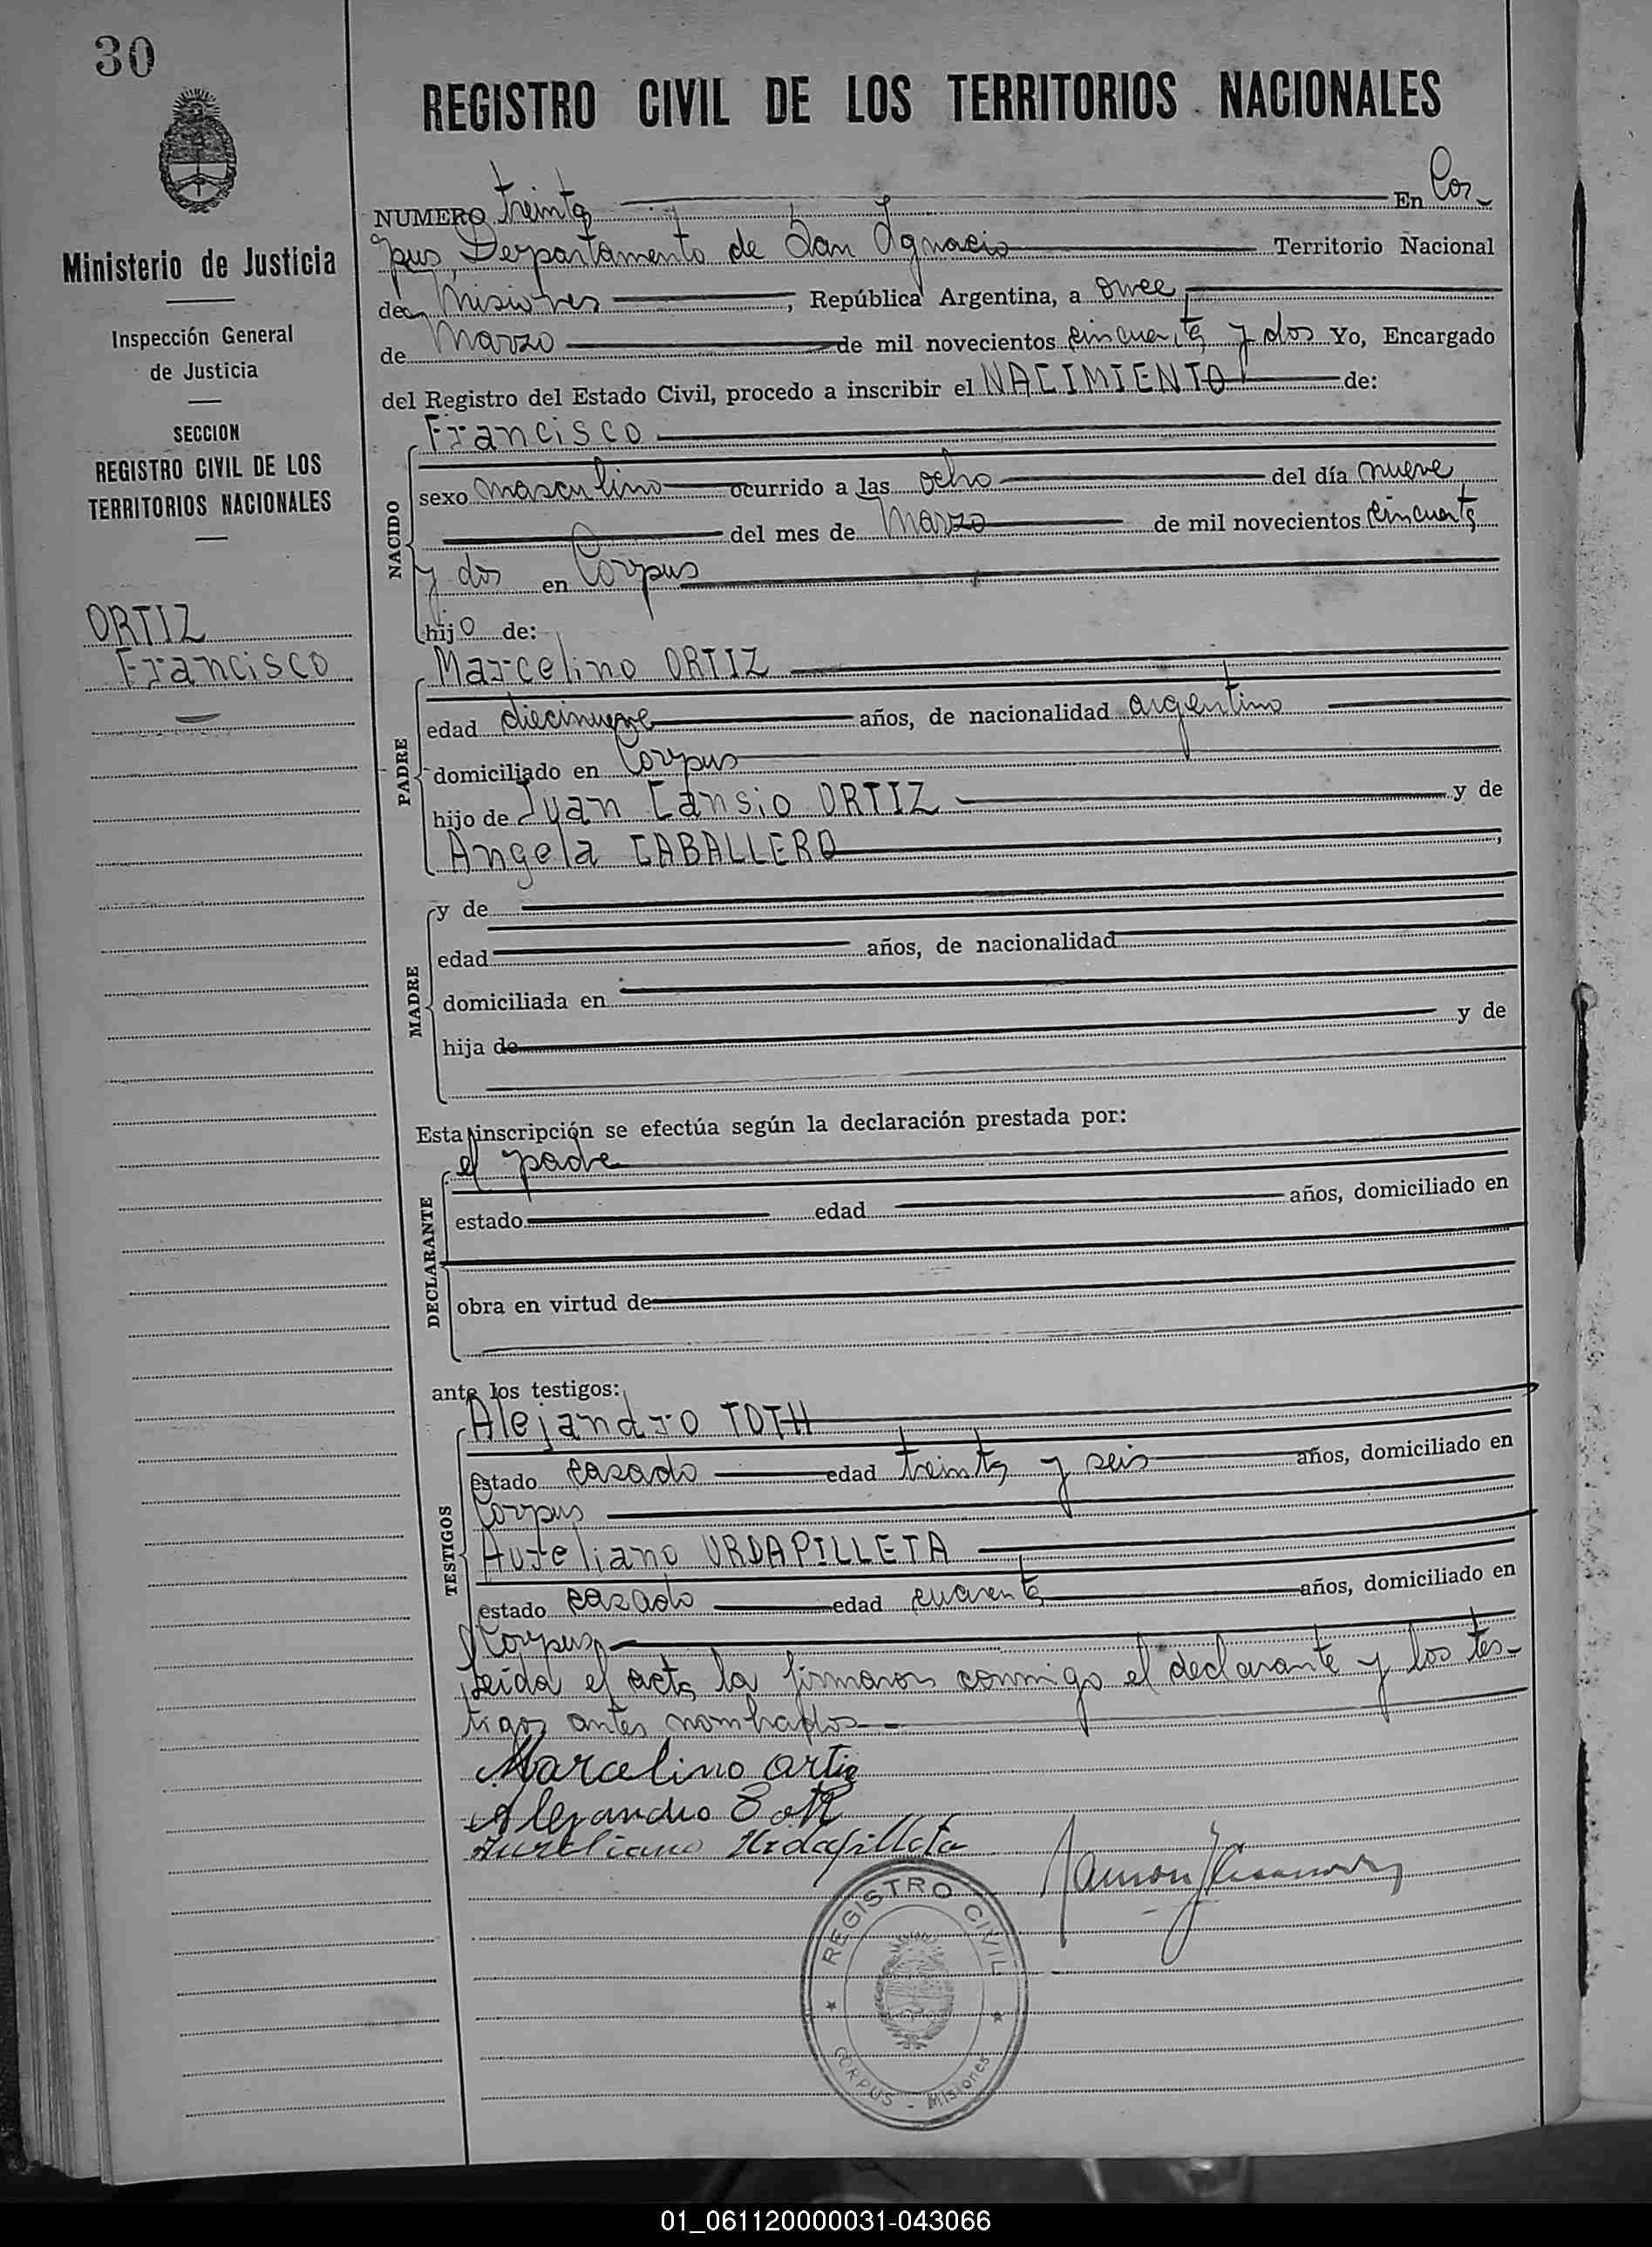 30
Ministerio de Justicia
Inspección General
de Justicia
SECCION
REGISTRO CIVIL DE LOS
TERRITORIOS NACIONALES
ORTIZ
Francisco
REGISTRO CIVIL DE LOS TERRITORIOS NACIONALES
NUMERO treinta En Cor-
pus, Departamento de San Ignacio Territorio Nacional
de Misiones, República Argentina, a once
de Marzo de mil novecientos cincuenta y dos Yo, Encargado
del Registro del Estado Civil, procedo a inscribir el NACIMIENTO de:
NACIDO
Francisco
sexo masculino ocurrido a las ocho del día nueve
del mes de Marzo de mil novecientos cincuenta
y dos en Corpus
hijo de:
PADRE
Marcelino ORTIZ
edad diecinueve años, de nacionalidad argentino
domiciliado en Corpus
hijo de Juan Cansio ORTIZ y de
Angela CABALLERO
MADRE
y de
edad años, de nacionalidad
domiciliada en
hija de y de
Esta inscripción se efectúa según la declaración prestada por:
DECLARANTE
el padre
estado edad años, domiciliado en
obra en virtud de
ante los testigos:
TESTIGOS
Alejandro TOTH
estado casado edad treinta y seis años, domiciliado en
Corpus
Aureliano URDAPILLETA
estado casado edad cuarenta años, domiciliado en
Corpus,
Leída el acta la firmaron conmigo el declarante y los tes-
tigos antes nombrados.-
Marcelino Ortiz
Alejandro Toth
Aureliano Urdapilleta
Ramon
REGISTRO CIVIL
CORPUS - Misiones
01_061120000031-043066